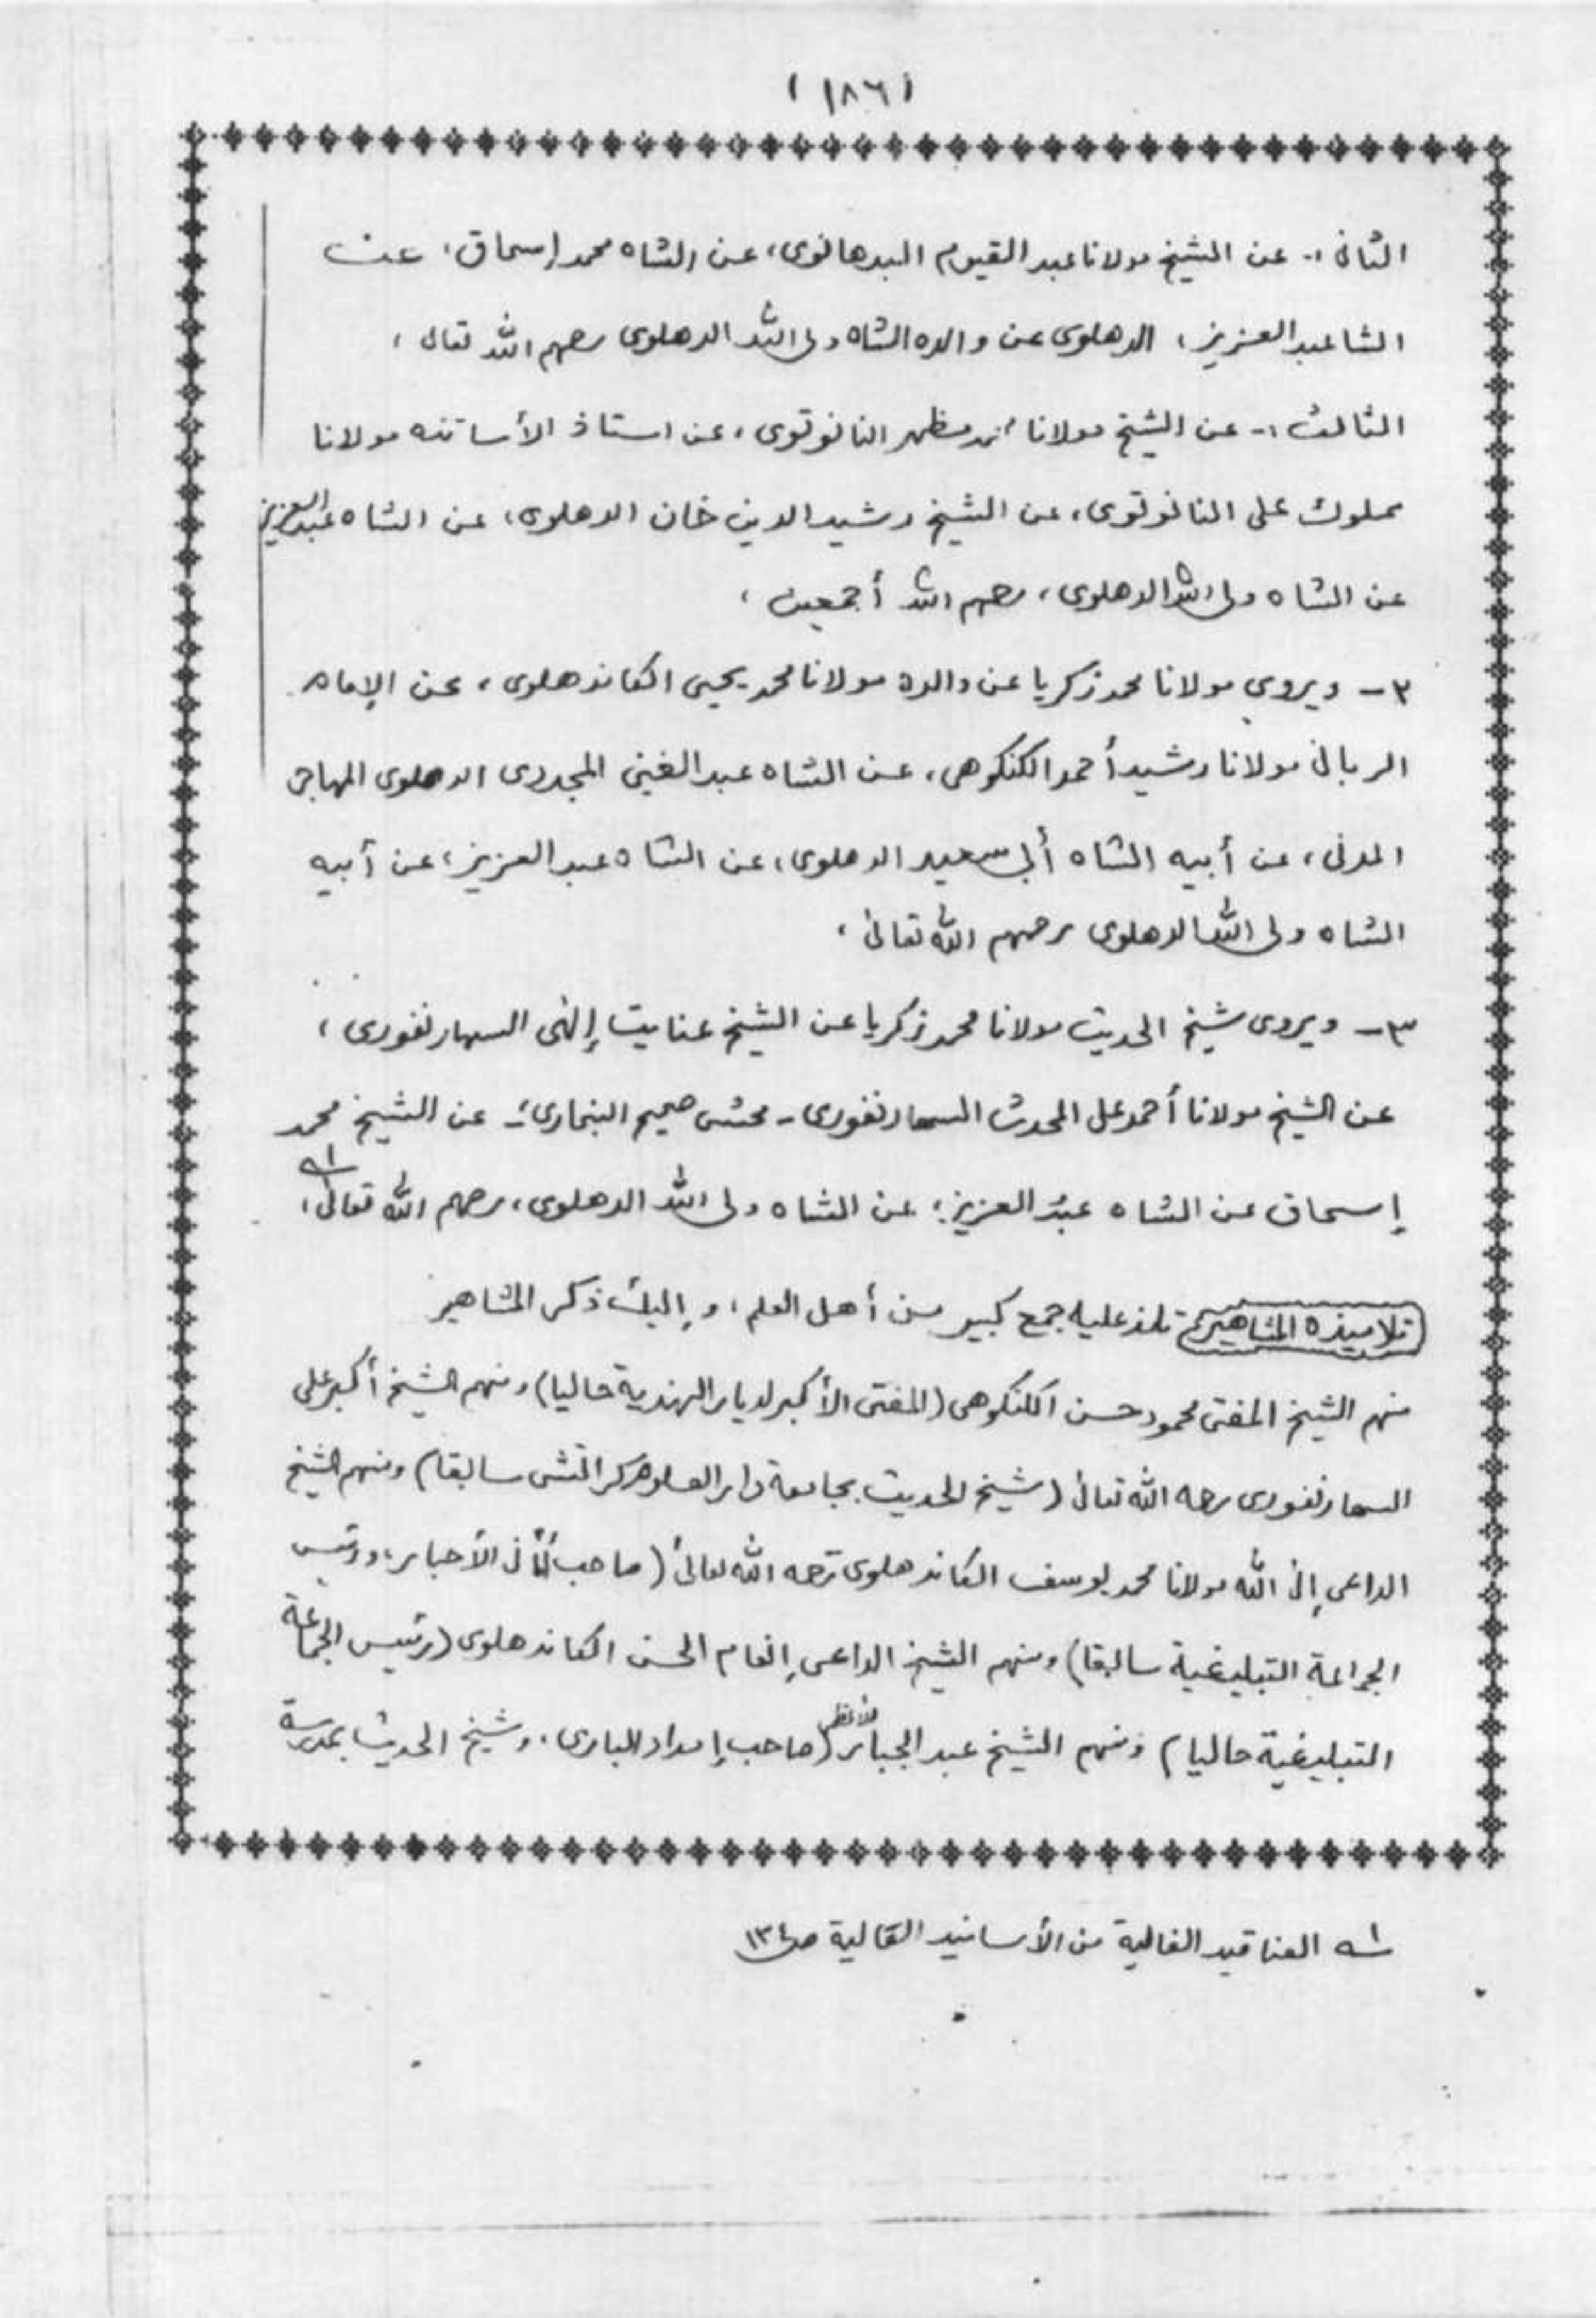 (١٨٦)
الثانى :- عن الشيخ مولانا عبد القيوم البدهانوى، عن الشاه محمد إسحاق، عن
الشا عبد العزيز، الدهلوى عن والده الشاه ولى الله الدهلوى رحمهم الله تعالى ،
الثالث :- عن الشيخ مولانا مظهر النانوتوى، عن استاذ الأساتذه مولانا
مملوك على النانوتوى، عن الشيخ رشيد الدين خان الدهلوى، عن الشاه عبد العزيز
عن الشاه ولى الله الدهلوى، رحمهم الله أجمعين ،
٢ - ويروي مولانا محمد زكريا عن والده مولانا محمد يحيى الكاندهلوى، عن الإمام
الربانى مولانا رشيد أحمد الكنكوهى، عن الشاه عبد الغينى المجددى الدهلوى المهاجر
المدنى، عن أبيه الشاه أبى سعيد الدهلوى، عن الشاه عبد العزيز، عن أبيه
الشاه ولى الله الدهلوى رحمهم الله تعالى ،
٣ - ويروى شيخ الحديث مولانا محمد زكريا عن الشيخ عنايت إلهى السهارنفورى ،
عن الشيخ مولانا أحمد على المحدث السهارنفورى - محشى صحيح البخارى - عن الشيخ محمد
إسحاق عن الشاه عبد العزيز، عن الشاه ولى الله الدهلوى، رحمهم الله تعالى، ١ـه
تلاميذه المشاهير تلمذ عليه جمع كبير من أهل العلم، وإليك ذكر المشاهير
منهم الشيخ المفتى محمود حسن الكنكوهى (المفتى الأكبر لديار الهندية حاليا) ومنهم الشيخ أكبر على
السهارنفورى رحمه الله تعالى (شيخ الحديث بجامعة دار العلوم كراتشى سابقا) ومنهم الشيخ
الداعى إلى الله مولانا محمد يوسف الكاندهلوى رحمه الله تعالى (صاحب أمانى الأحبار، ورئيس
الجماعة التبليغية سابقا) ومنهم الشيخ الداعى إنعام الحسن الكاندهلوى (رئيس الجماعة
التبليغية حاليا) ومنهم الشيخ عبد الجبار الأعظمى (صاحب إمداد البارى، وشيخ الحديث بمدرسة
١ـه العناقيد الغالية من الأسانيد العالية